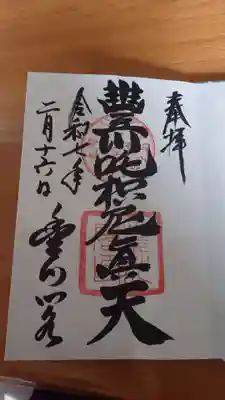 奉拝
豊川吒枳尼真天
令和七年
二月十六日
豊川閣